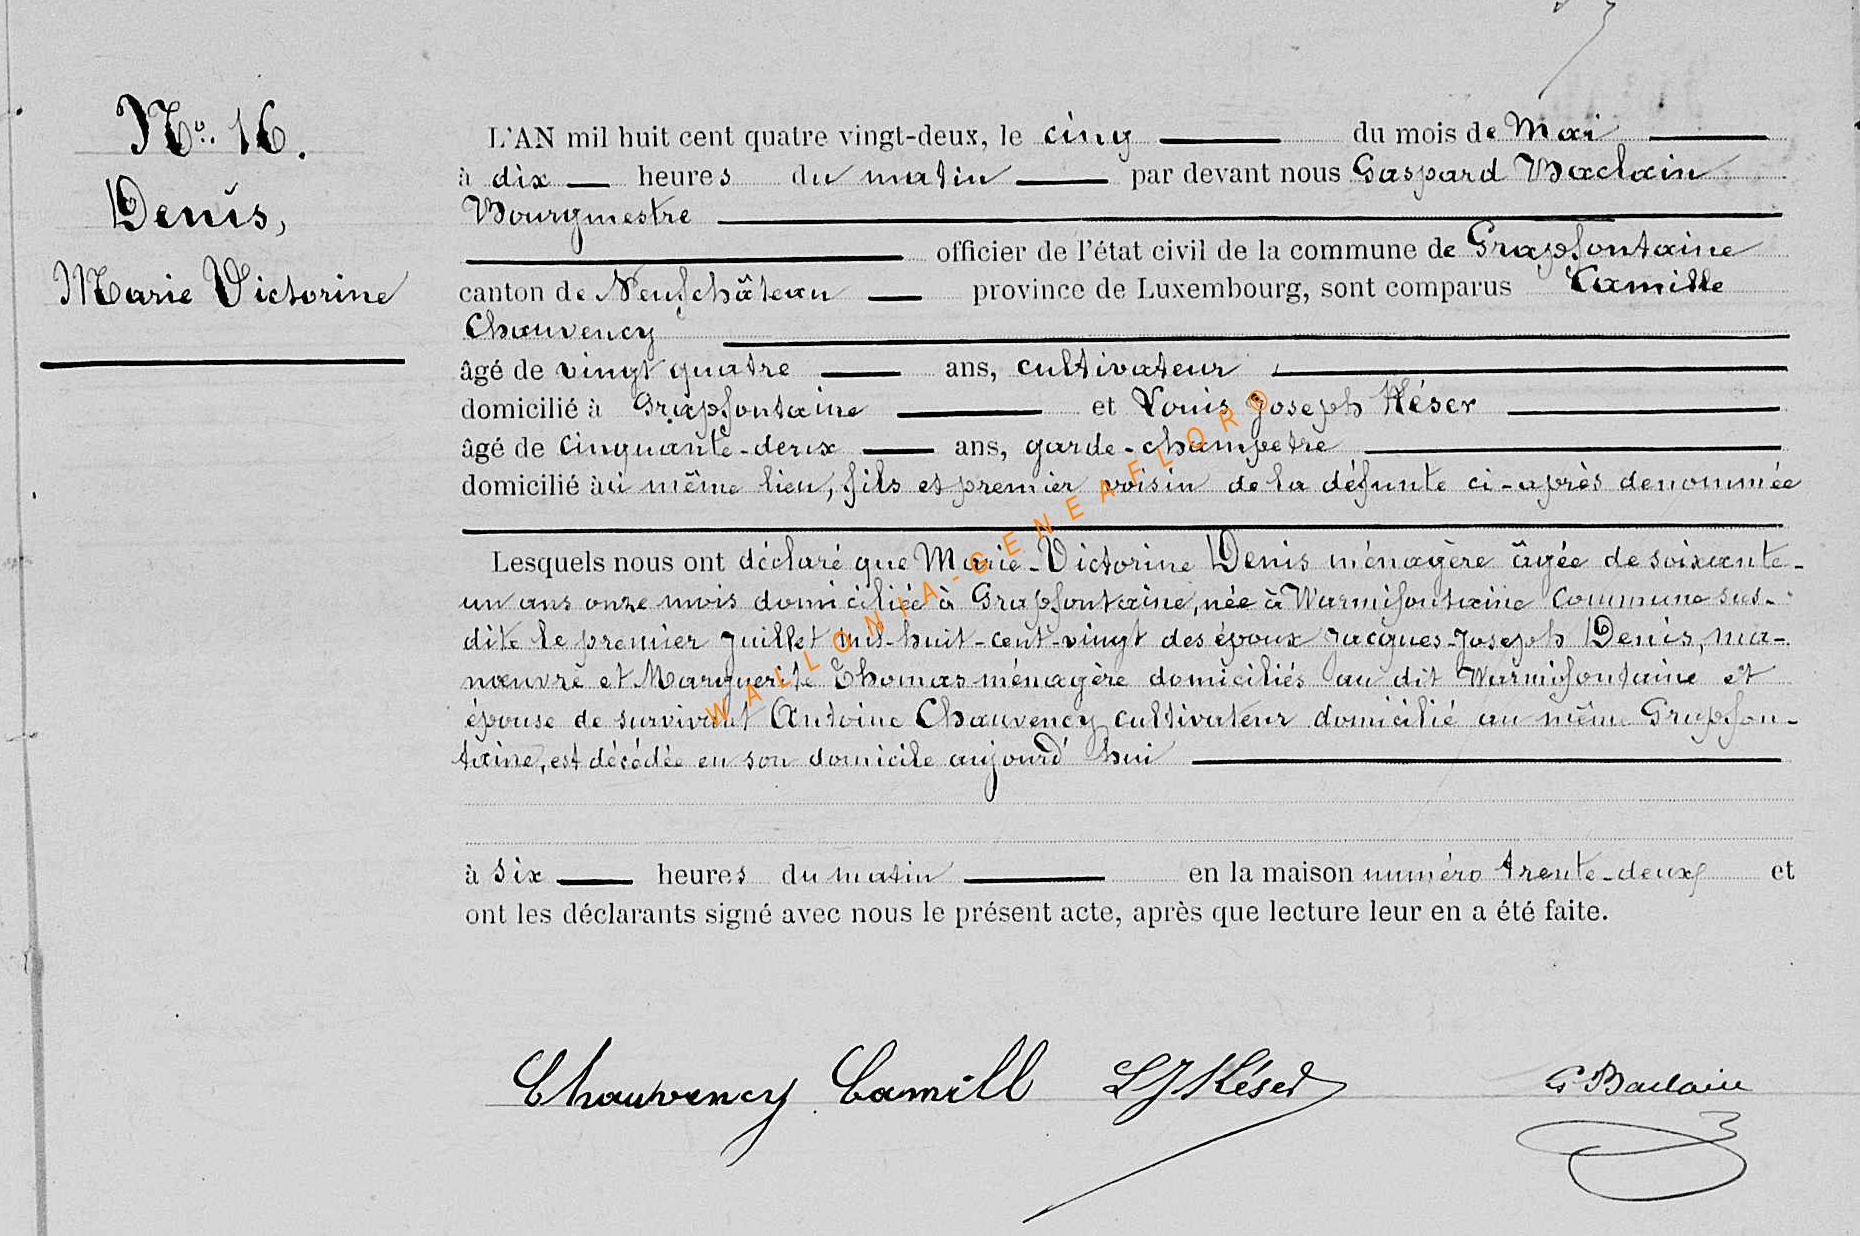 No. 16.
Denis,
Marie Victorine
L'AN mil huit cent quatre vingt-deux, le cinq du mois de Mai
à dix heures du matin par devant nous Gaspard Baclain
Bourgmestre
officier de l'état civil de la commune de Grapfontaine
canton de Neufchâteau province de Luxembourg, sont comparus Camille
Chauvency
âgé de vingt quatre ans, cultivateur
domicilié à Grapfontaine et Louis Joseph Késer
âgé de cinquante-deux ans, garde-champetre
domicilié au même lieu, fils et premier voisin de la défunte ci-après denommée
Lesquels nous ont déclaré que Marie-Victorine Denis ménagère âgée de soixante-
un ans onze mois domiciliée à Grapfontaine, née à Warmifontaine commune sus-
dite le premier juillet mil-huit-cent-vingt des époux Jacques-Joseph Denis, ma-
nœuvre et Marguerite Thomas ménagère domiciliés au dit Warmifontaine et
épouse de survivant Antoine Chauvency cultivateur domicilié au même Grapfon-
taine, est décédée en son domicile aujourd'hui
à six heures du matin en la maison numéro trente-deux et
ont les déclarants signé avec nous le présent acte, après que lecture leur en a été faite.
Chauvency Camill LJ Késer G Baclain
WALLONIA-GENEAFLORO